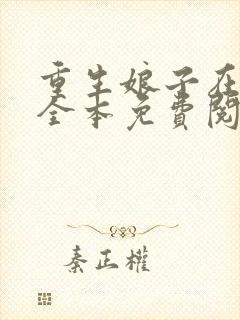 重生娘子在
全本免費閱
秦正權